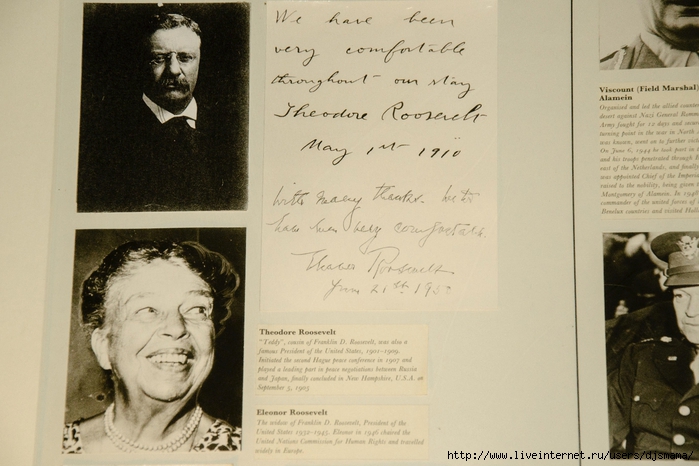 We have been
very comfortable
throughout our stay
Theodore Roosevelt
May 1st 1910
with many thanks.
has been very comfortable.
Roosevelt
21st
Theodore Roosevelt
"Teddy", cousin of Franklin D. Roosevelt, was also a
famous President of the United States, 1901-1909.
Initiated the second Hague peace conference in 1907 and
played a leading part in peace negotiations between Russia
and Japan, finally concluded in New Hampshire, U.S.A. on
September 5, 1905
Eleonor Roosevelt
The widow of Franklin D. Roosevelt, President of the
United States 1932-1945. Eleonor in 1946 chaired the
United Nations Commission for Human Rights and travelled
widely in Europe.
Viscount (Field Marshal)
Alamein
Organised and led the allied
desert against Nazi General
Army fought for 12 days and
turning point in the war in North
was known, went on further to
On June 6, 1944 he took part in
and his troops penetrated through
east of the Netherlands, and finally
was appointed Chief of the Imperial
raised to the nobility, being given
Montgomery of Alamein. In 1948
commander of the united forces of
Benelux countries and visited
http://www.liveinternet.ru/users/djsmoma/